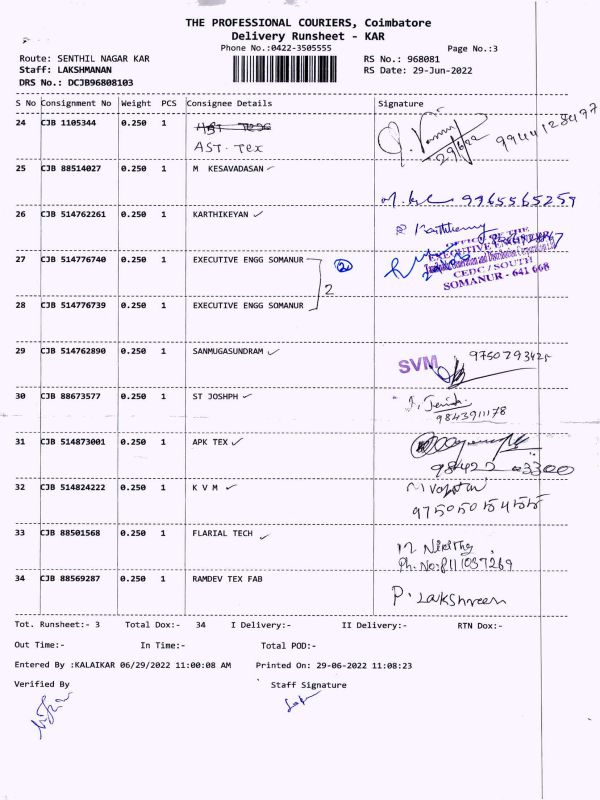 THE PROFESSIONAL COURIERS, Coimbatore
Delivery Runsheet - KAR
Phone No.:0422-3505555 Page No.:3
Route: SENTHIL NAGAR KAR RS No.: 968081
Staff: LAKSHMANAN RS Date: 29-Jun-2022
DRS No.: DCJB96808103
S No Consignment No Weight PCS Consignee Details Signature
24 CJB 1105344 0.250 1 AST TEX
AST. Tex 29/6/22 9944128497
25 CJB 88514027 0.250 1 M KESAVADASAN
9965565259
26 CJB 514762261 0.250 1 KARTHIKEYAN
OFFICE OF THE
27 CJB 514776740 0.250 1 EXECUTIVE ENGG SOMANUR 2
CEDC / SOUTH
SOMANUR - 641 668
2
28 CJB 514776739 0.250 1 EXECUTIVE ENGG SOMANUR
29 CJB 514762890 0.250 1 SANMUGASUNDRAM SVM
30 CJB 88673577 0.250 1 ST JOSHPH
9843911178
31 CJB 514873001 0.250 1 APK TEX
98422 -3300
32 CJB 514824222 0.250 1 K V M
33 CJB 88501568 0.250 1 FLARIAL TECH
Ph. No: 8111057269
34 CJB 88569287 0.250 1 RAMDEV TEX FAB
P. Lakshmeen
Tot. Runsheet:- 3 Total Dox:- 34 I Delivery:- II Delivery:- RTN Dox:-
Out Time:- In Time:- Total POD:-
Entered By :KALAIKAR 06/29/2022 11:00:08 AM Printed On: 29-06-2022 11:08:23
Verified By Staff Signature